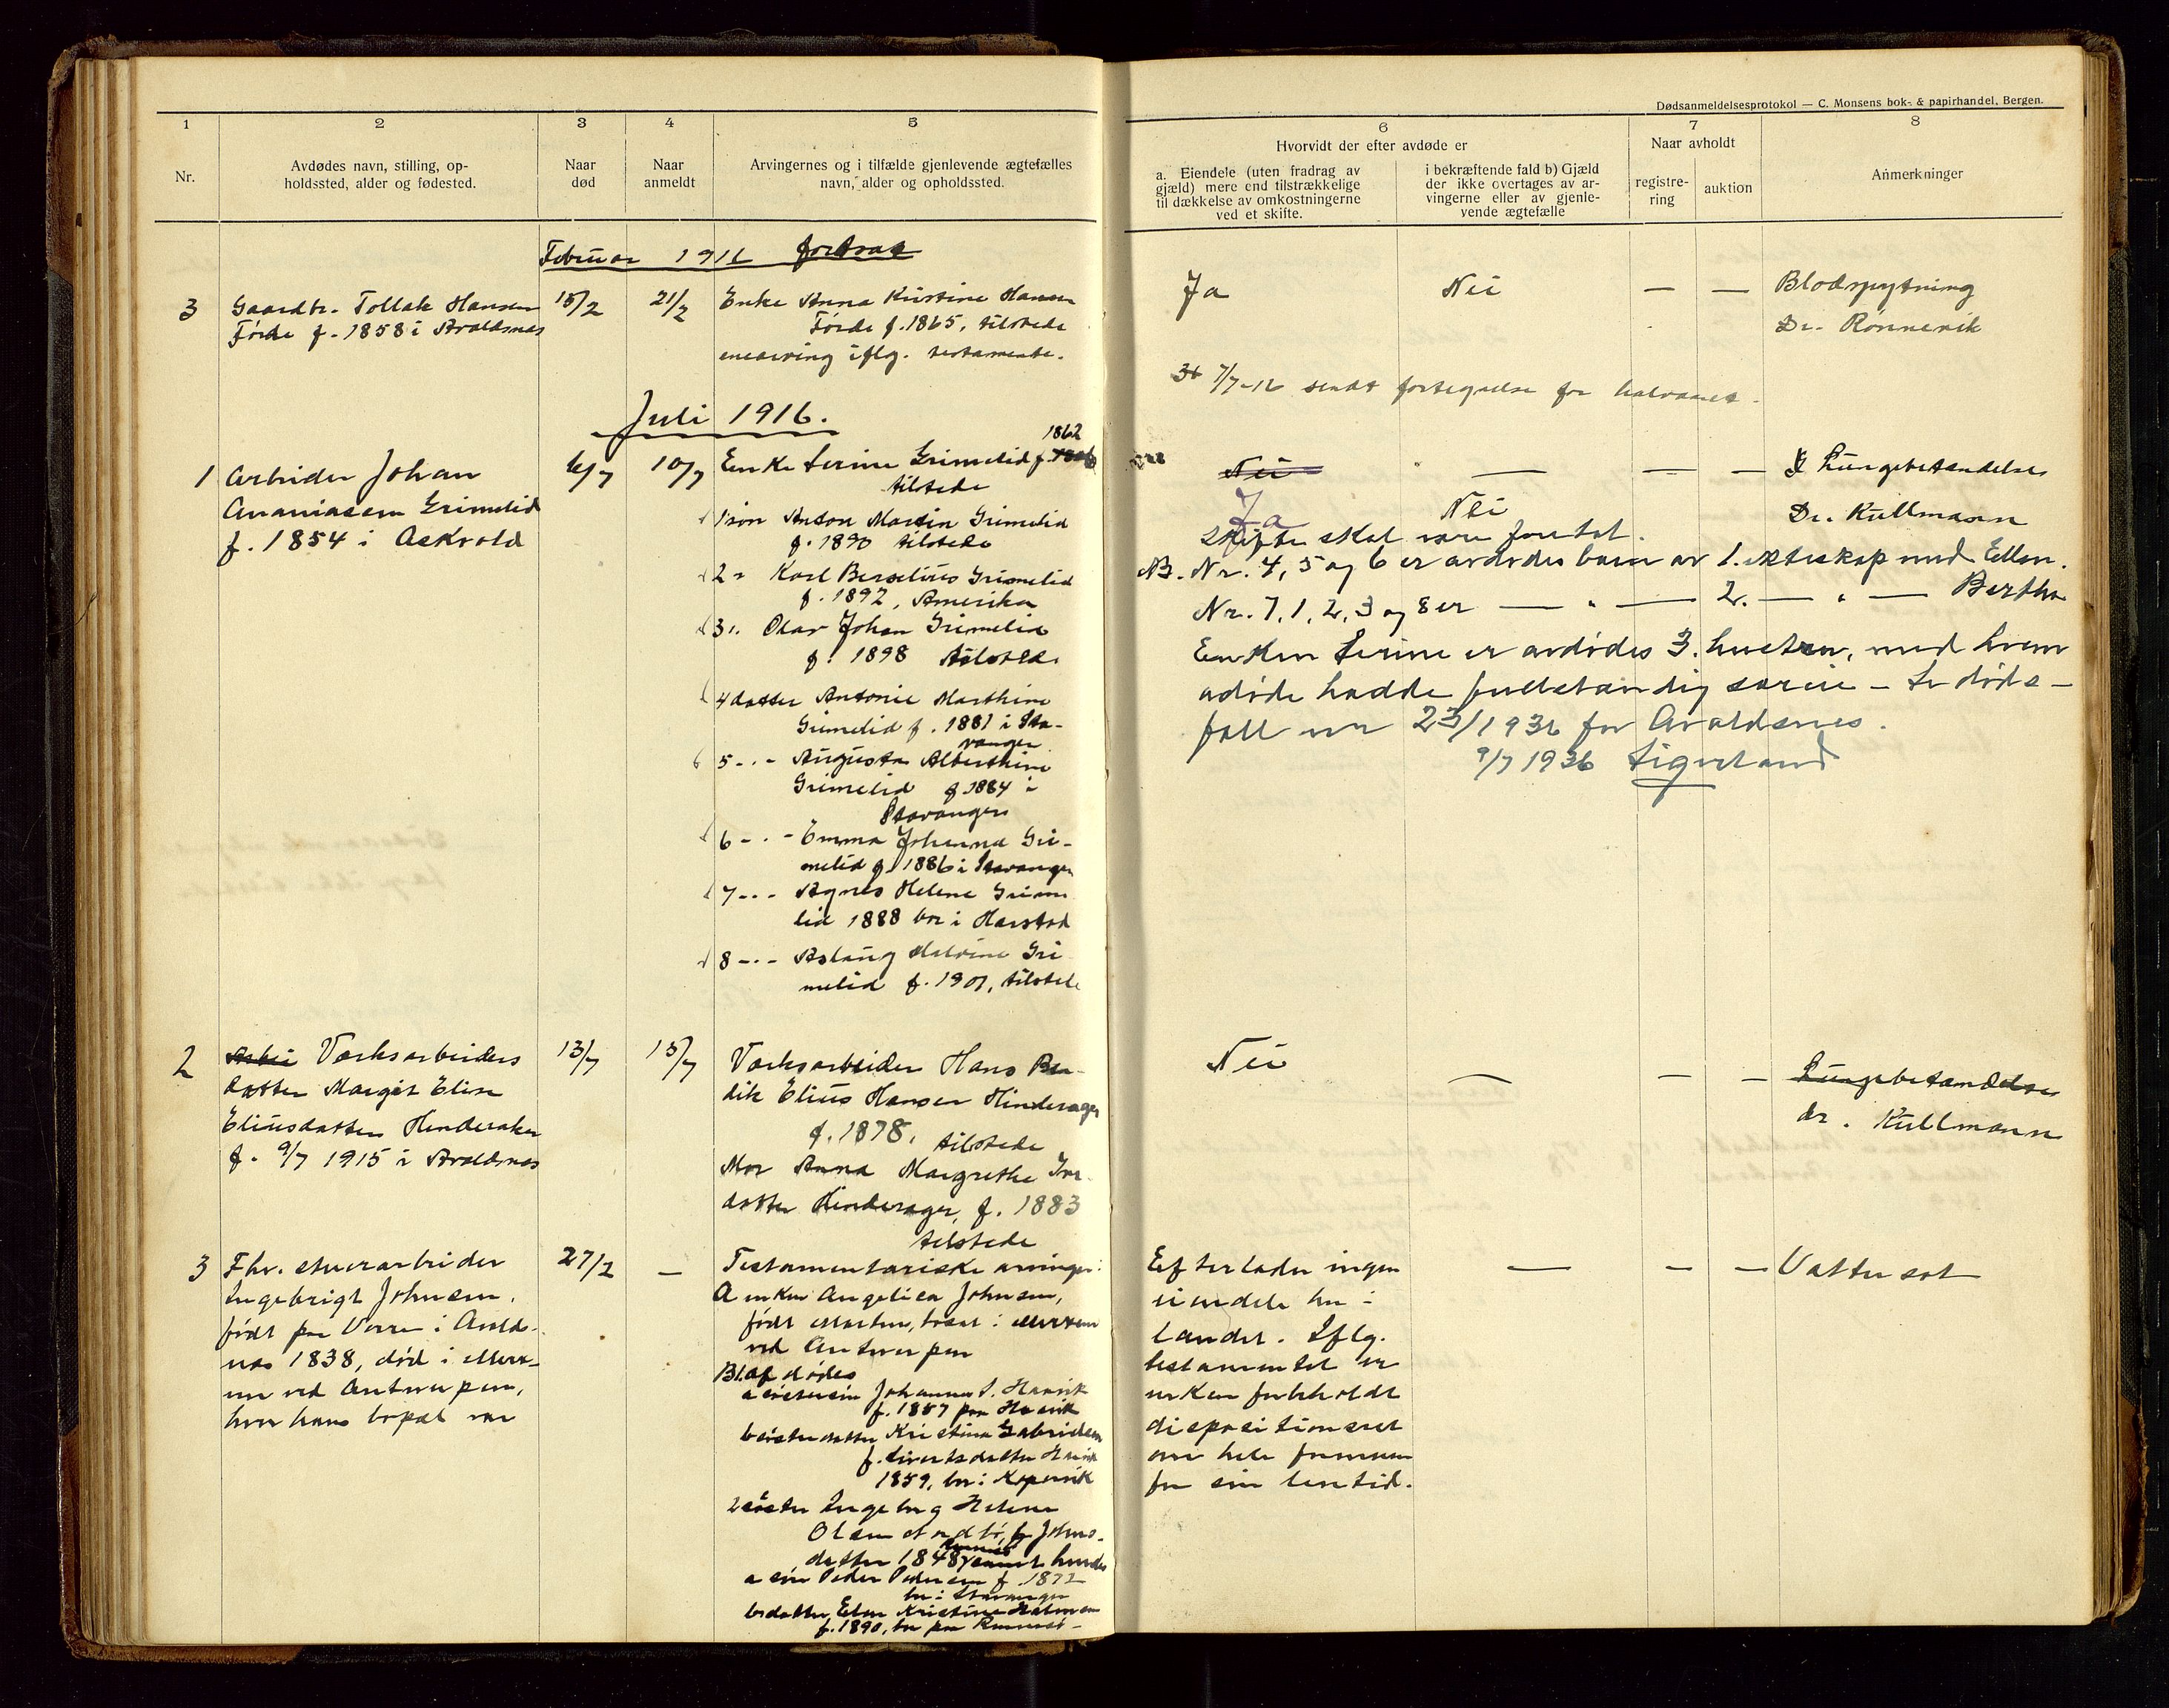 Dødsanmeldelsesprotokol — C. Monsens bok- & papirhandel, Bergen.
1 2 3 4 5 6 7 8
Nr.
Avdødes navn, stilling, op-
holdssted, alder og fødested.
Naar
død
Naar
anmeldt
Arvingernes og i tilfælde gjenlevende ægtefælles
navn, alder og opholdssted.
Hvorvidt der efter avdøde er
a. Eiendele (uten fradrag av
gjæld) mere end tilstrækkelige
til dækkelse av omkostningerne
ved et skifte.
i bekræftende fald b) Gjæld
der ikke overtages av ar-
vingerne eller av gjenle-
vende ægtefælle
Naar avholdt
registre-
ring
auktion
Anmerkninger
Februar 1916
3
Gaardbr. Tollak Hansen
Førde f. 1858 i Avaldsnes
15/2
21/2
Enke Anna Kristine Hansen
Førde f. 1865, tilstede
enearving iflg. testamente.
Ja
Nei
— —
Blodspytning
Dr. Rønnevik
7/7-16 sendt fortegnelse for halvaaret.
Juli 1916.
1
Arbeider Johan
Ananiassen Grimelid
f. 1854 i Askvold
6/7
10/7
Enke Serine Grimelid f. 1862
tilstede
1 søn Anton Martin Grimelid
f. 1890 tilstede
2 " Karl Berselius Grimelid
f. 1892, Amerika
3 " Olav Johan Grimelid
f. 1898 tilstede
4 datter Antonie Marthine
Grimelid f. 1881 i Sta-
vanger
5 - " - Augusta Alberthine
Grimelid f. 1884 i
Stavanger
6 - " - Emma Johanna Gri-
melid f. 1886 i Stavanger
7 - " - Agnes Helene Grime
lid 1888 bor i Harstad
8 - " - Aslaug Halvine Gri
melid f. 1901, tilstede
Nei
— — —
Lungebetændelse
Ja
Nei
Dr. Kullmann
Skifte skal være foretat.
NB. Nr. 4, 5 og 6 er avdødes barn av 1. ekteskap med Ellen.
Nr. 7, 1, 2, 3 og 8 er — " — 2. — " — Bertha
Enken Serine er avdødes 3. hustru, med hvem
adøde hadde fullstændig særeie - Se døds-
fall nr 23/1936 for Avaldsnes.
9/7 1936 Sigveland
2
Verksarbeiders
datter Margit Elise
Eliusdatter Hinderaker
f. 9/7 1915 i Avaldsnes
13/7
15/7
Verksarbeider Hans Ben-
dik Elius Hansen Hinderager
f. 1878, tilstede
Mor Anna Margrethe Iver
datter Hinderager, f. 1883
tilstede
Nei
— — —
Lungebetændelse
dr. Kullmann
3
Fhv. stuerarbeider
Ingebrigt Johnsen,
født paa Vorre i Avalds-
nes 1838, død i Merx-
em ved Antwerpen,
hvor hans bopæl var
27/2
—
Testamentariske arvinger:
A enken Angelica Johnsen,
født Martens, bosat i Merxem
ved Antwerpen
B1. af dødes
a søstersøn Johannes S. Havik
f. 1857 paa Havik
b søsterdatter Kristina Gabrielsen
f. Sivertsdatter Havik
1859, bor i Kopervik
2 søster Ingeborg Helene
Olsen f. Johns-
datter 1848 samt hendes
a søn Peder Pedersen f. 1872
bor i Stavanger
b datter Elen Kristine
f. 1890, bor paa
Efterlader ingen
eiendele her i
landet. Iflg.
testamentet er
enken forbeholdt
dispositionsret
over hele formuen
for sin levetid.
— — —
Vattersot